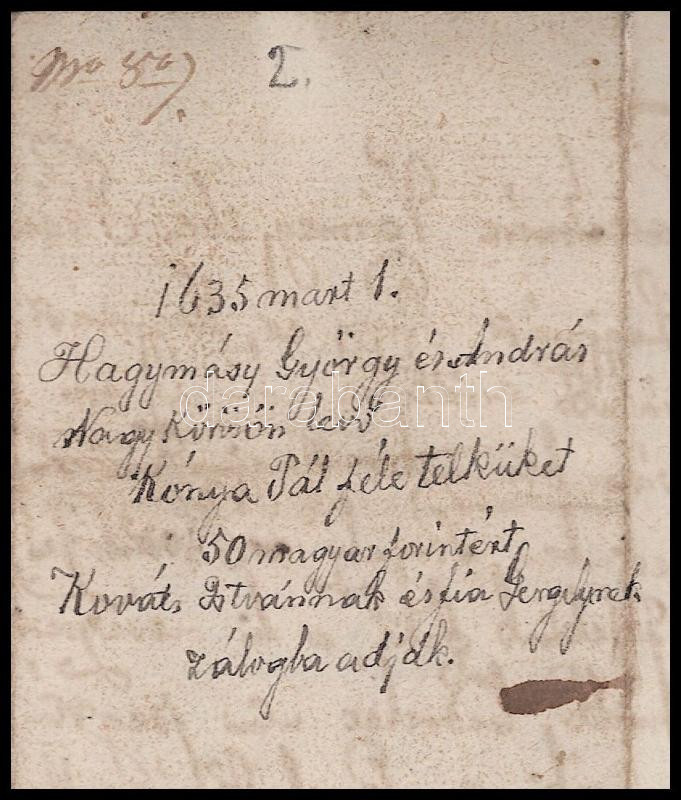 No 80)
2.
1635 mart 1.
Hagymásy György és András
Nagy Körösön levő
Kónya Pál féle telküket
50 magyar forintért
Kováts Istvánnak és fia Gergelynek
zálogba adják.
darabanth